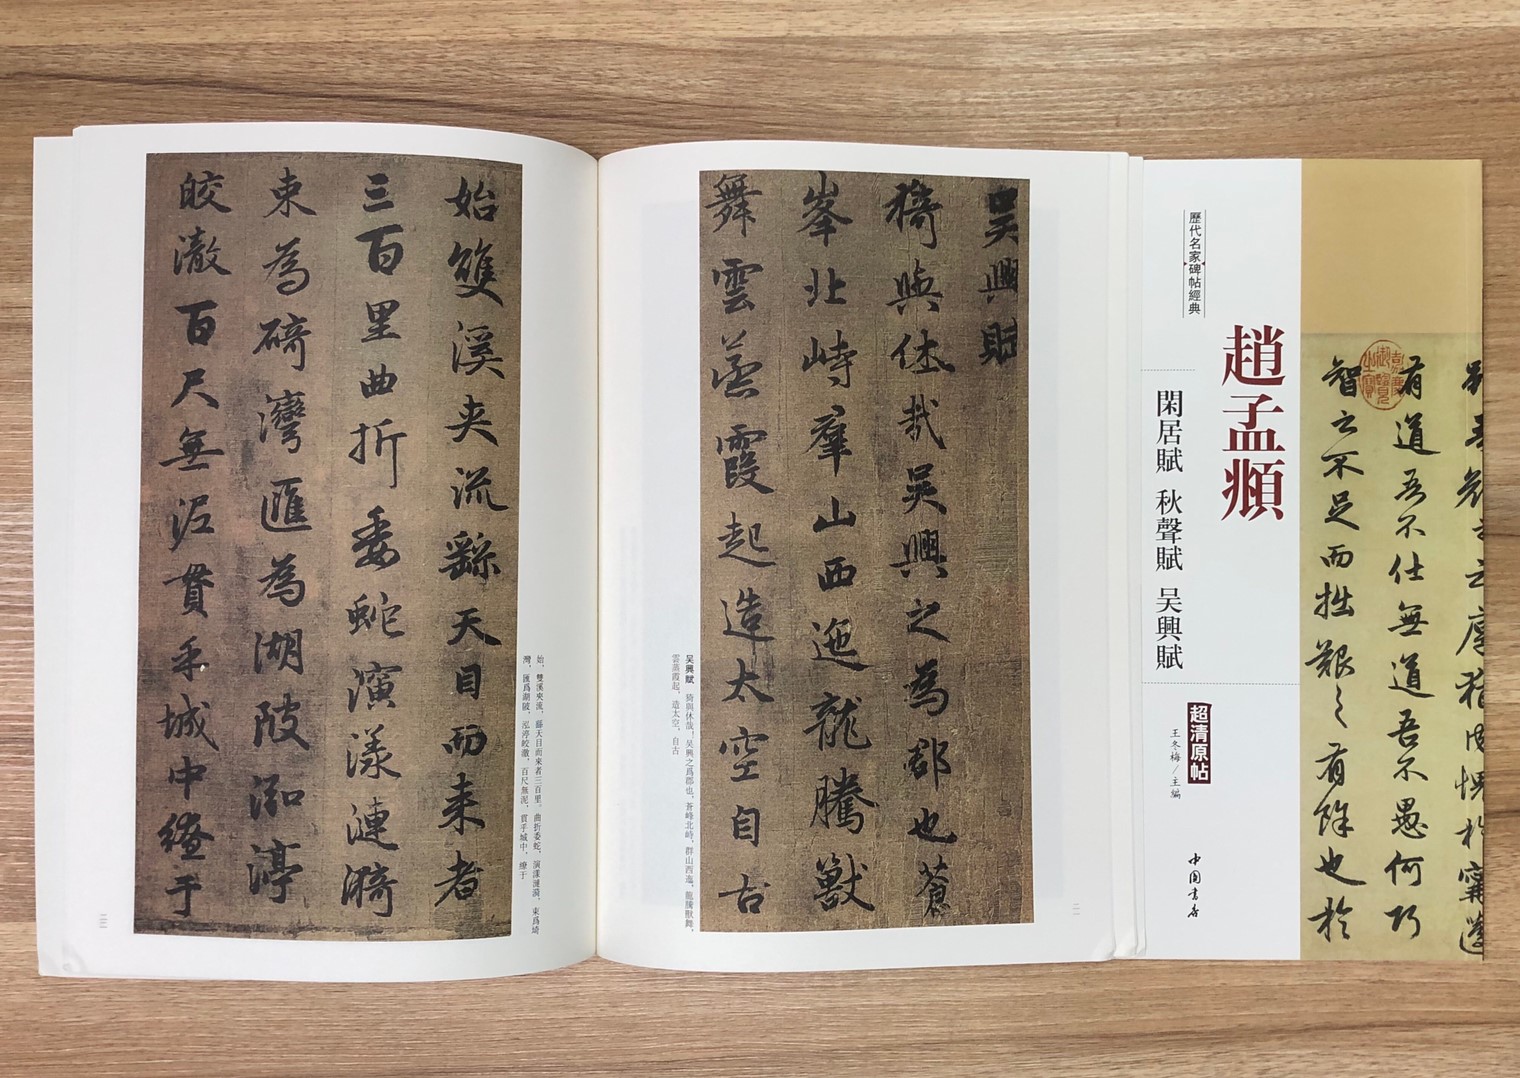 歷代名家碑帖經典
趙孟頫
閑居賦 秋聲賦 吴興賦
超清原帖
王冬梅/主編
中國書店
有道吾不仕無道吾不愚何巧
智之不足而拙艱之有餘也於
吳興賦
猗與休哉吳興之為郡也蒼
峯北峙羣山西迤龍騰獸
舞雲蒸霞起造太空自古
吴興賦 猗與休哉！吴興之爲郡也，蒼峰北峙，群山西迤，龍騰獸舞，
雲蒸霞起，造太空，自古
二一
始雙溪夾流繇天目而来者
三百里曲折委蛇演漾漣漪
束為碕灣匯為湖陂泓渟
皎澈百尺無泥貫乎城中繚于
始，雙溪夾流，繇天目而來者三百里。曲折委蛇，演漾漣漪，束爲碕
灣，匯爲湖陂，泓渟皎澈，百尺無泥，貫乎城中，繚于
二二